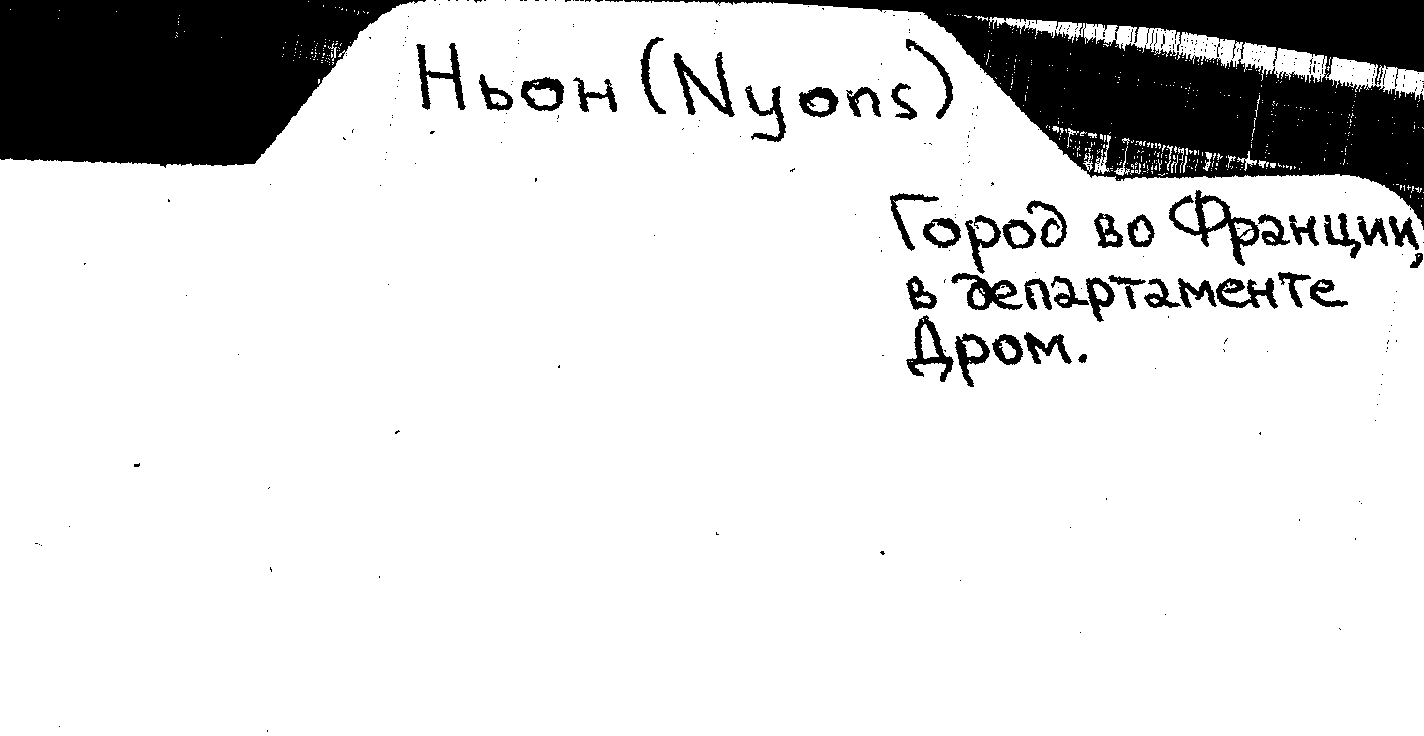 Ньон (Nyons)
Город во Франции,
в департаменте
Дром.